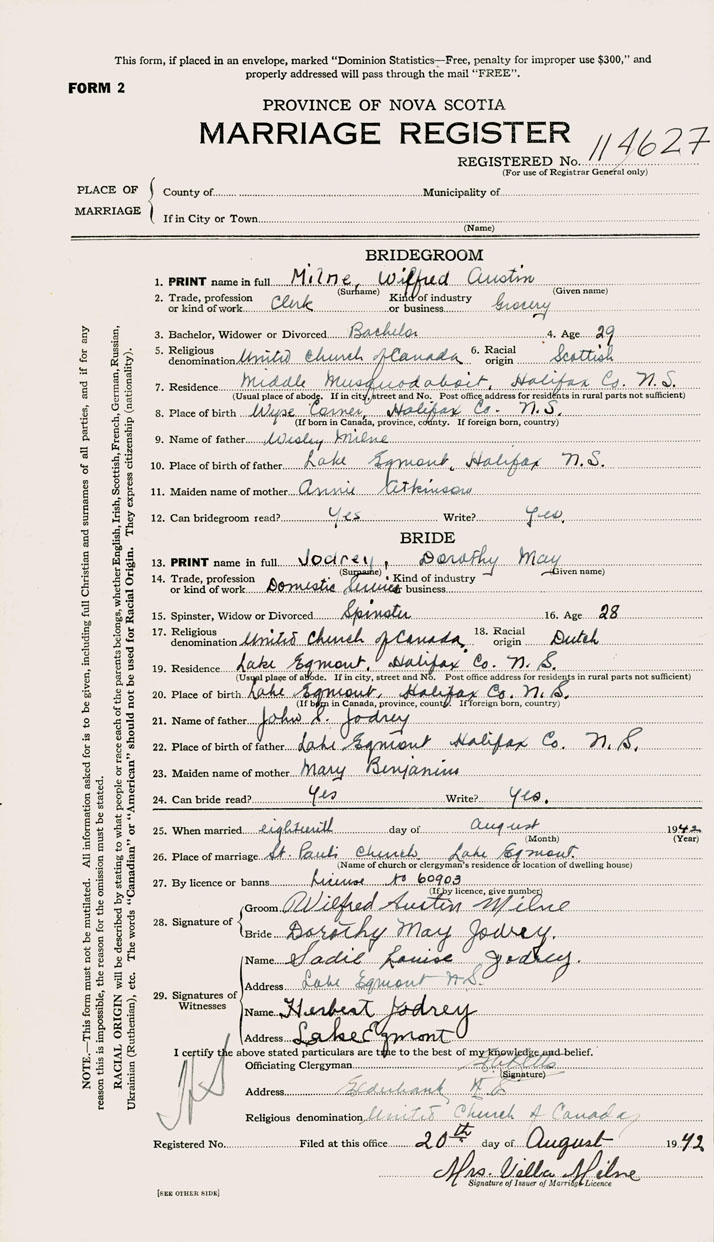 This form, if placed in an envelope, marked "Dominion Statistics—Free, penalty for improper use $300," and
properly addressed will pass through the mail "FREE".
FORM 2
PROVINCE OF NOVA SCOTIA
MARRIAGE REGISTER
REGISTERED No. 114627
(For use of Registrar General only)
PLACE OF MARRIAGE
County of Municipality of
If in City or Town
(Name)
BRIDEGROOM
1. PRINT name in full Milne, Wilfred Austin
(Surname) (Given name)
2. Trade, profession or kind of work Clerk Kind of industry or business Grocery
3. Bachelor, Widower or Divorced Bachelor 4. Age 29
5. Religious denomination United Church of Canada 6. Racial origin Scottish
7. Residence Middle Musquodoboit, Halifax Co. N.S.
(Usual place of abode. If in city, street and No. Post office address for residents in rural parts not sufficient)
8. Place of birth Wyse Corner, Halifax Co. N.S.
(If born in Canada, province, county. If foreign born, country)
9. Name of father Wesley Milne
10. Place of birth of father Lake Egmont, Halifax N.S.
11. Maiden name of mother Annie Atkinson
12. Can bridegroom read? Yes Write? Yes.
BRIDE
13. PRINT name in full Jodrey, Dorothy May
(Surname) (Given name)
14. Trade, profession or kind of work Domestic Service Kind of industry or business
15. Spinster, Widow or Divorced Spinster 16. Age 28
17. Religious denomination United Church of Canada 18. Racial origin Dutch
19. Residence Lake Egmont, Halifax Co. N.S.
(Usual place of abode. If in city, street and No. Post office address for residents in rural parts not sufficient)
20. Place of birth Lake Egmont, Halifax Co. N.S.
(If born in Canada, province, county. If foreign born, country)
21. Name of father John S. Jodrey
22. Place of birth of father Lake Egmont Halifax Co. N.S.
23. Maiden name of mother Mary Benjamin
24. Can bride read? Yes Write? Yes.
25. When married eighteenth day of August 1942
(Month) (Year)
26. Place of marriage St. Pauls Church. Lake Egmont.
(Name of church or clergyman's residence or location of dwelling house)
27. By licence or banns License No 60903
(If by licence, give number)
28. Signature of
Groom Wilfred Austin Milne
Bride Dorothy May Jodrey.
29. Signatures of Witnesses
Name Sadie Louise Jodrey.
Address Lake Egmont N.S.
Name Herbert Jodrey
Address Lake Egmont
I certify the above stated particulars are true to the best of my knowledge and belief.
Officiating Clergyman
(Signature)
Address Elderbank N.S
Religious denomination United Church of Canada
Registered No. Filed at this office 20th day of August 1942
Mrs. Villa Milne
Signature of Issuer of Marriage Licence
[SEE OTHER SIDE]
NOTE.—This form must not be mutilated. All information asked for is to be given, including full Christian and surnames of all parties, and if for any
reason this is impossible, the reason for the omission must be stated.
RACIAL ORIGIN will be described by stating to what people or race each of the parents belongs, whether English, Irish, Scottish, French, German, Russian,
Ukrainian (Ruthenian), etc. The words "Canadian" or "American" should not be used for Racial Origin. They express citizenship (nationality).